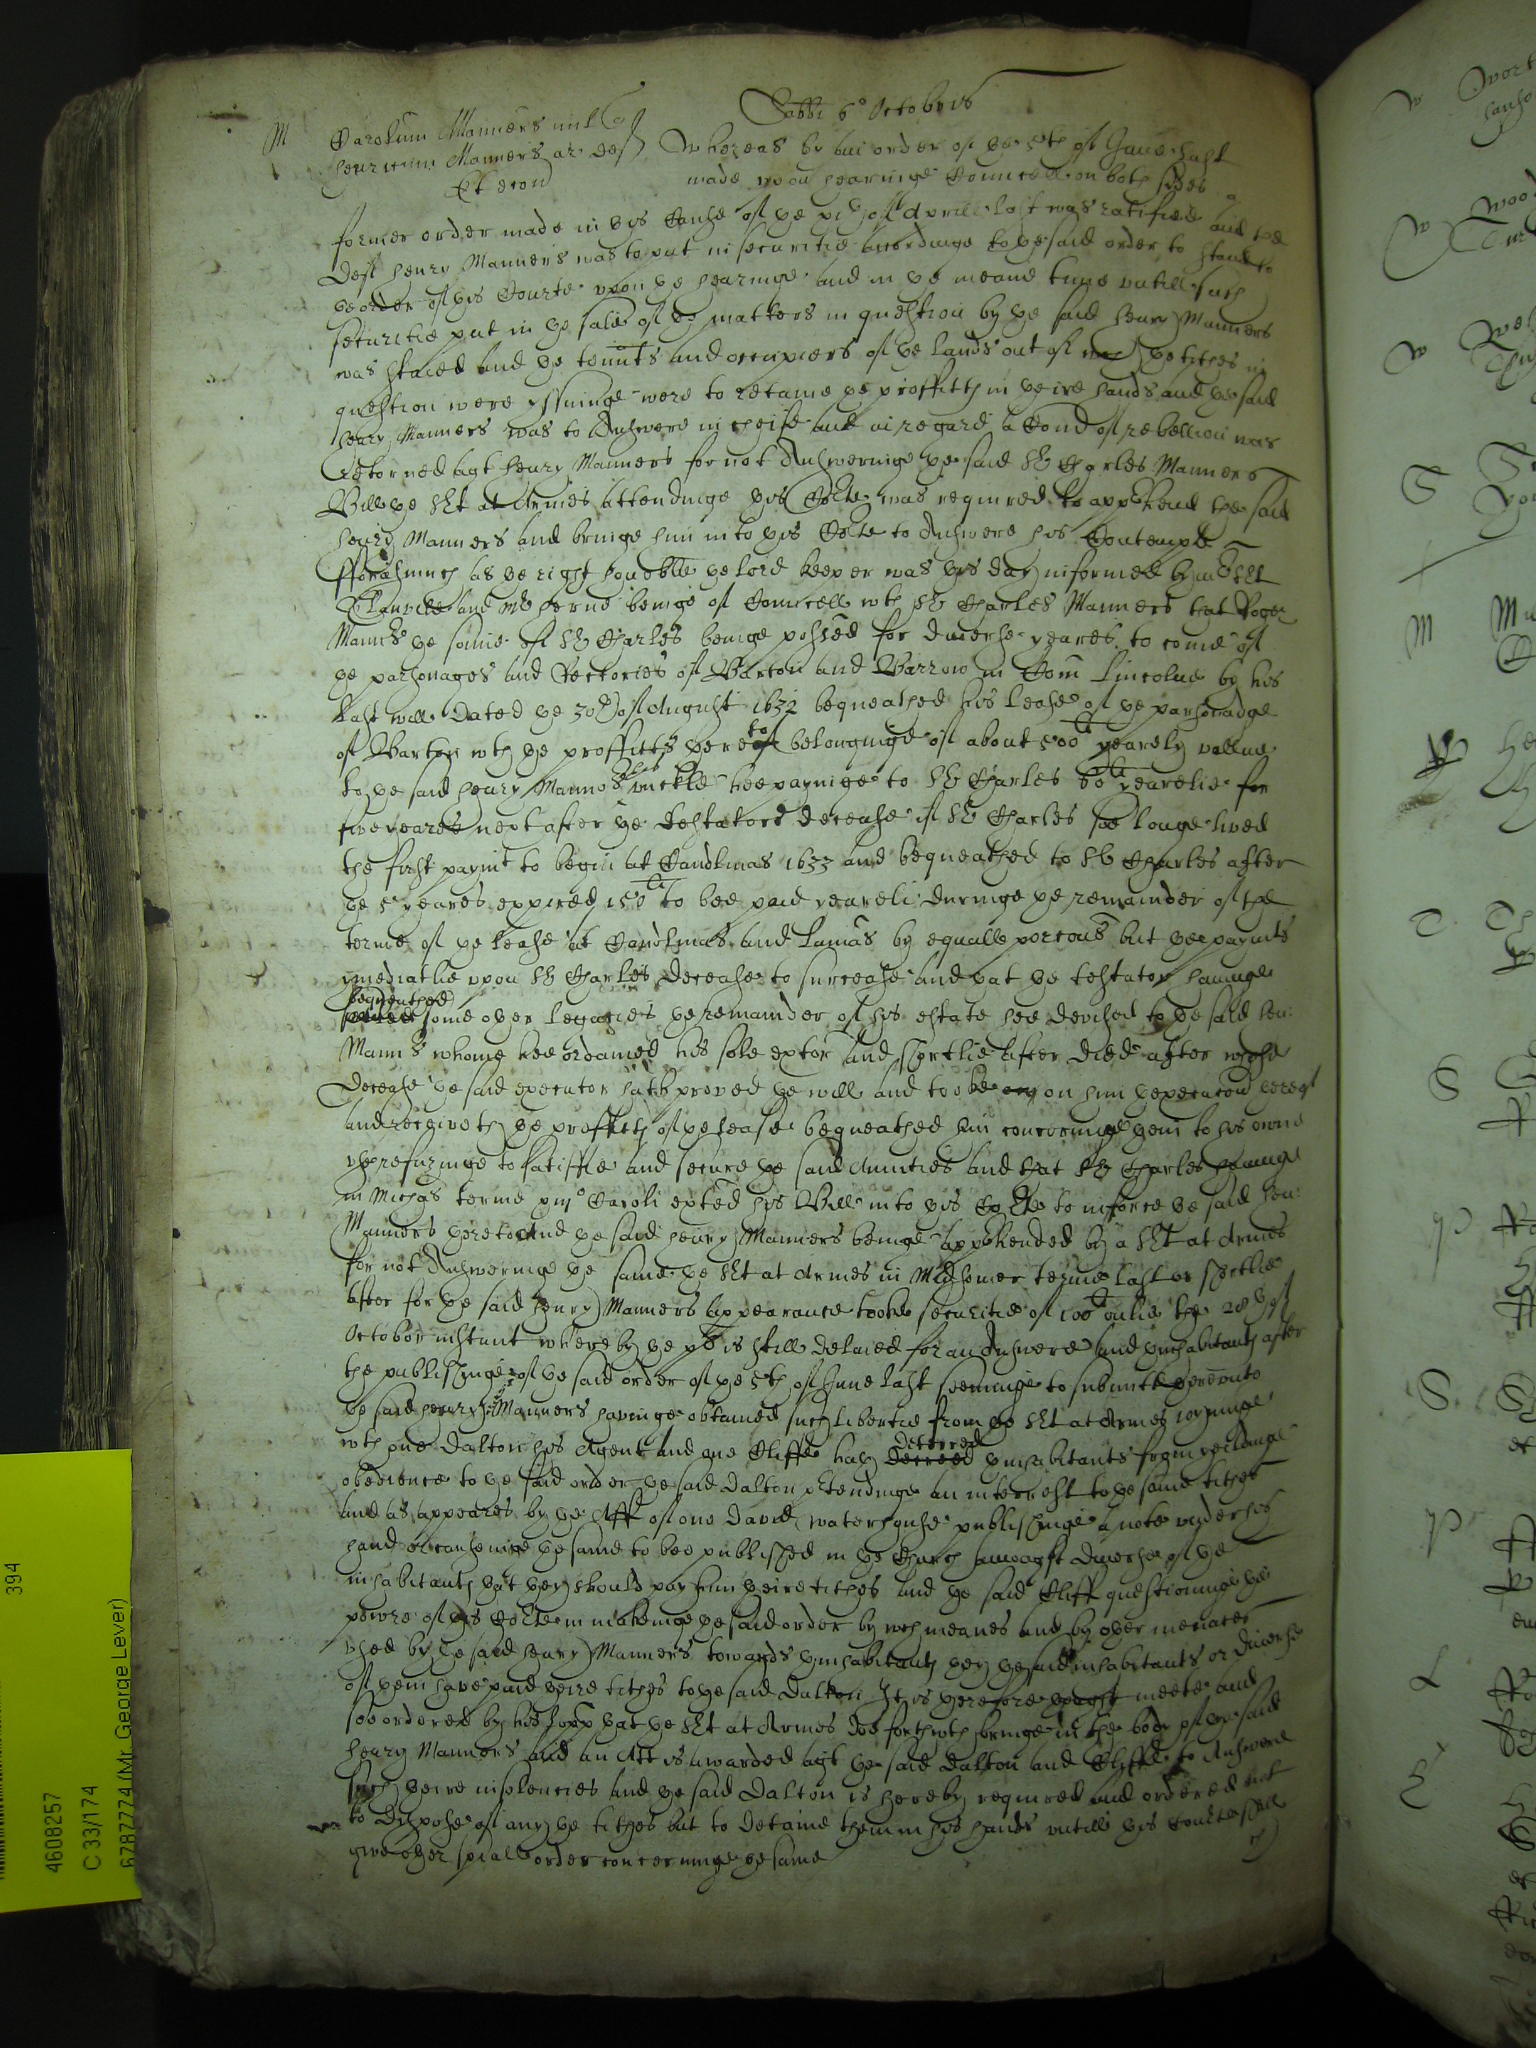 Sabbi 6° Octobris
M Carolum Manners mil quer
Henricum Manners ar def Whereas by an order of ye 5th of June last
Et econ made upon hearinge Councell on both sides a
former order made in this Cause of ye of Aprill last was ratified and the
Deft Henry Manners was to put in securitie accordinge to ye said order to stand to
ye order of this Courte upon ye hearinge and in ye meane tyme untill such
securitie put in ye sale of ye matters in question by ye said Henry Manners
was staied and ye tennts and occupiers of ye lands out of wch ye tithes in
question were yssuinge were to retaine ye proffitts in theire hands and ye said
Henry Manners was to Answere in cheife and in regard a Comd of rebellion was
retorned agt Henry Manners for not Answeringe ye said Sr Charles Manners
Bill ye Sjt at Armes attendinge this Corte was required to apprehend the said
Henry Manners and bringe him into this Corte to Answere his Contempte
fforasmuch as ye right honoble ye lord keeper was this day informed by mr Sjt
and mr Herne beinge of Councell wth Sr Charles Manners that Roger
Manns ye sonne of Sr Charles beinge possed for diverse yeares to come of
ye parsonages and Rectories of Barton and Barrow in Com Lincolne by his
last will dated ye 30th of August 1632 bequeathed his lease of ye parsonadge
of Barton wth ye proffitts thereto belonginge of about 500li yearely vallue
to ye said Henry Manns his unckle hee payinge to Sr Charles li yearelie for
five yeares next after ye testators decease if Sr Charles soe longe lived
the first paymt to begin at Candlmas 1633 and bequeathed to Sr Charles after
ye 5 yeares expired 150li to bee paid yeareli duringe ye remainder of the
terme of ye lease at Candlmas and Lamas by equall porcons but the paymts
ymediatlie upon Sr Charles decease to surcease and yat ye testator havinge
bequeathed
some other legacies ye remainder of his estate hee devised to ye said Hen:
Manns whome hee ordained his sole exTor and shortlie after died after whose
decease ye said executor hath proved ye will and tooke on him ye execucon thereof
and receiveth ye proffitts of ye lease bequeathed him concerninge them to his owne
use refusinge to satisffie and secure ye said Anuities and that Sr Charles havinge
in Michas terme Caroli exted his Bill into this Corte to inforce ye said Hen:
Manners thereto And ye said Henry Manners beinge apprehended by a Sjt at Armes
for not Answeringe ye same ye Sjt at Armes in Midsomer terme last or shortlie
after for ye said Henry Manners appearance tooke securitie of 100li onlie the 20th of
October instant whereby ye plt is still delaied for an Answere and ye inhabitants after
the publishinge of ye said order of ye 5th of June last seeminge to submitt thereunto
ye said Henry Manners havinge obtained such libertie from ye Sjt at Armes joyninge
wth one Dalton his Agent and one Cliffe hath deterred ye inhabitants from yeildinge
obedience to ye said order ye said Dalton ptendinge an interrest to ye same tithes
and as appeares by ye Afft of one David Waterhouse publishinge a note under his
hand or causeinge ye same to bee published in ye Church amongst diverse of ye
inhabitants yat they should pay him theire tithes and ye said Cliff questioninge ye
power of this Corte in makeinge ye said order by wch meanes and by other menaces
used by ye said Henry Manners towards ye inhabitants they ye said inhabitants or diverse
of them have paid theire tithes to ye said Dalton It is therefore thought meete and
soe ordered by his lopp yat ye Sjt at Armes doe forthwth bringe in the body of ye said
Henry Manners and an Att is awarded agt ye said Dalton and Cliffe to Answere
such theire insolencies and ye said Dalton is hereby required and ordered not
to dispose of any ye tithes but to detaine them in his hands untill this Courte shall
give other spiall order concerninge ye same
394
4608257
C 33/174
6787774 (Mr. George Lever)